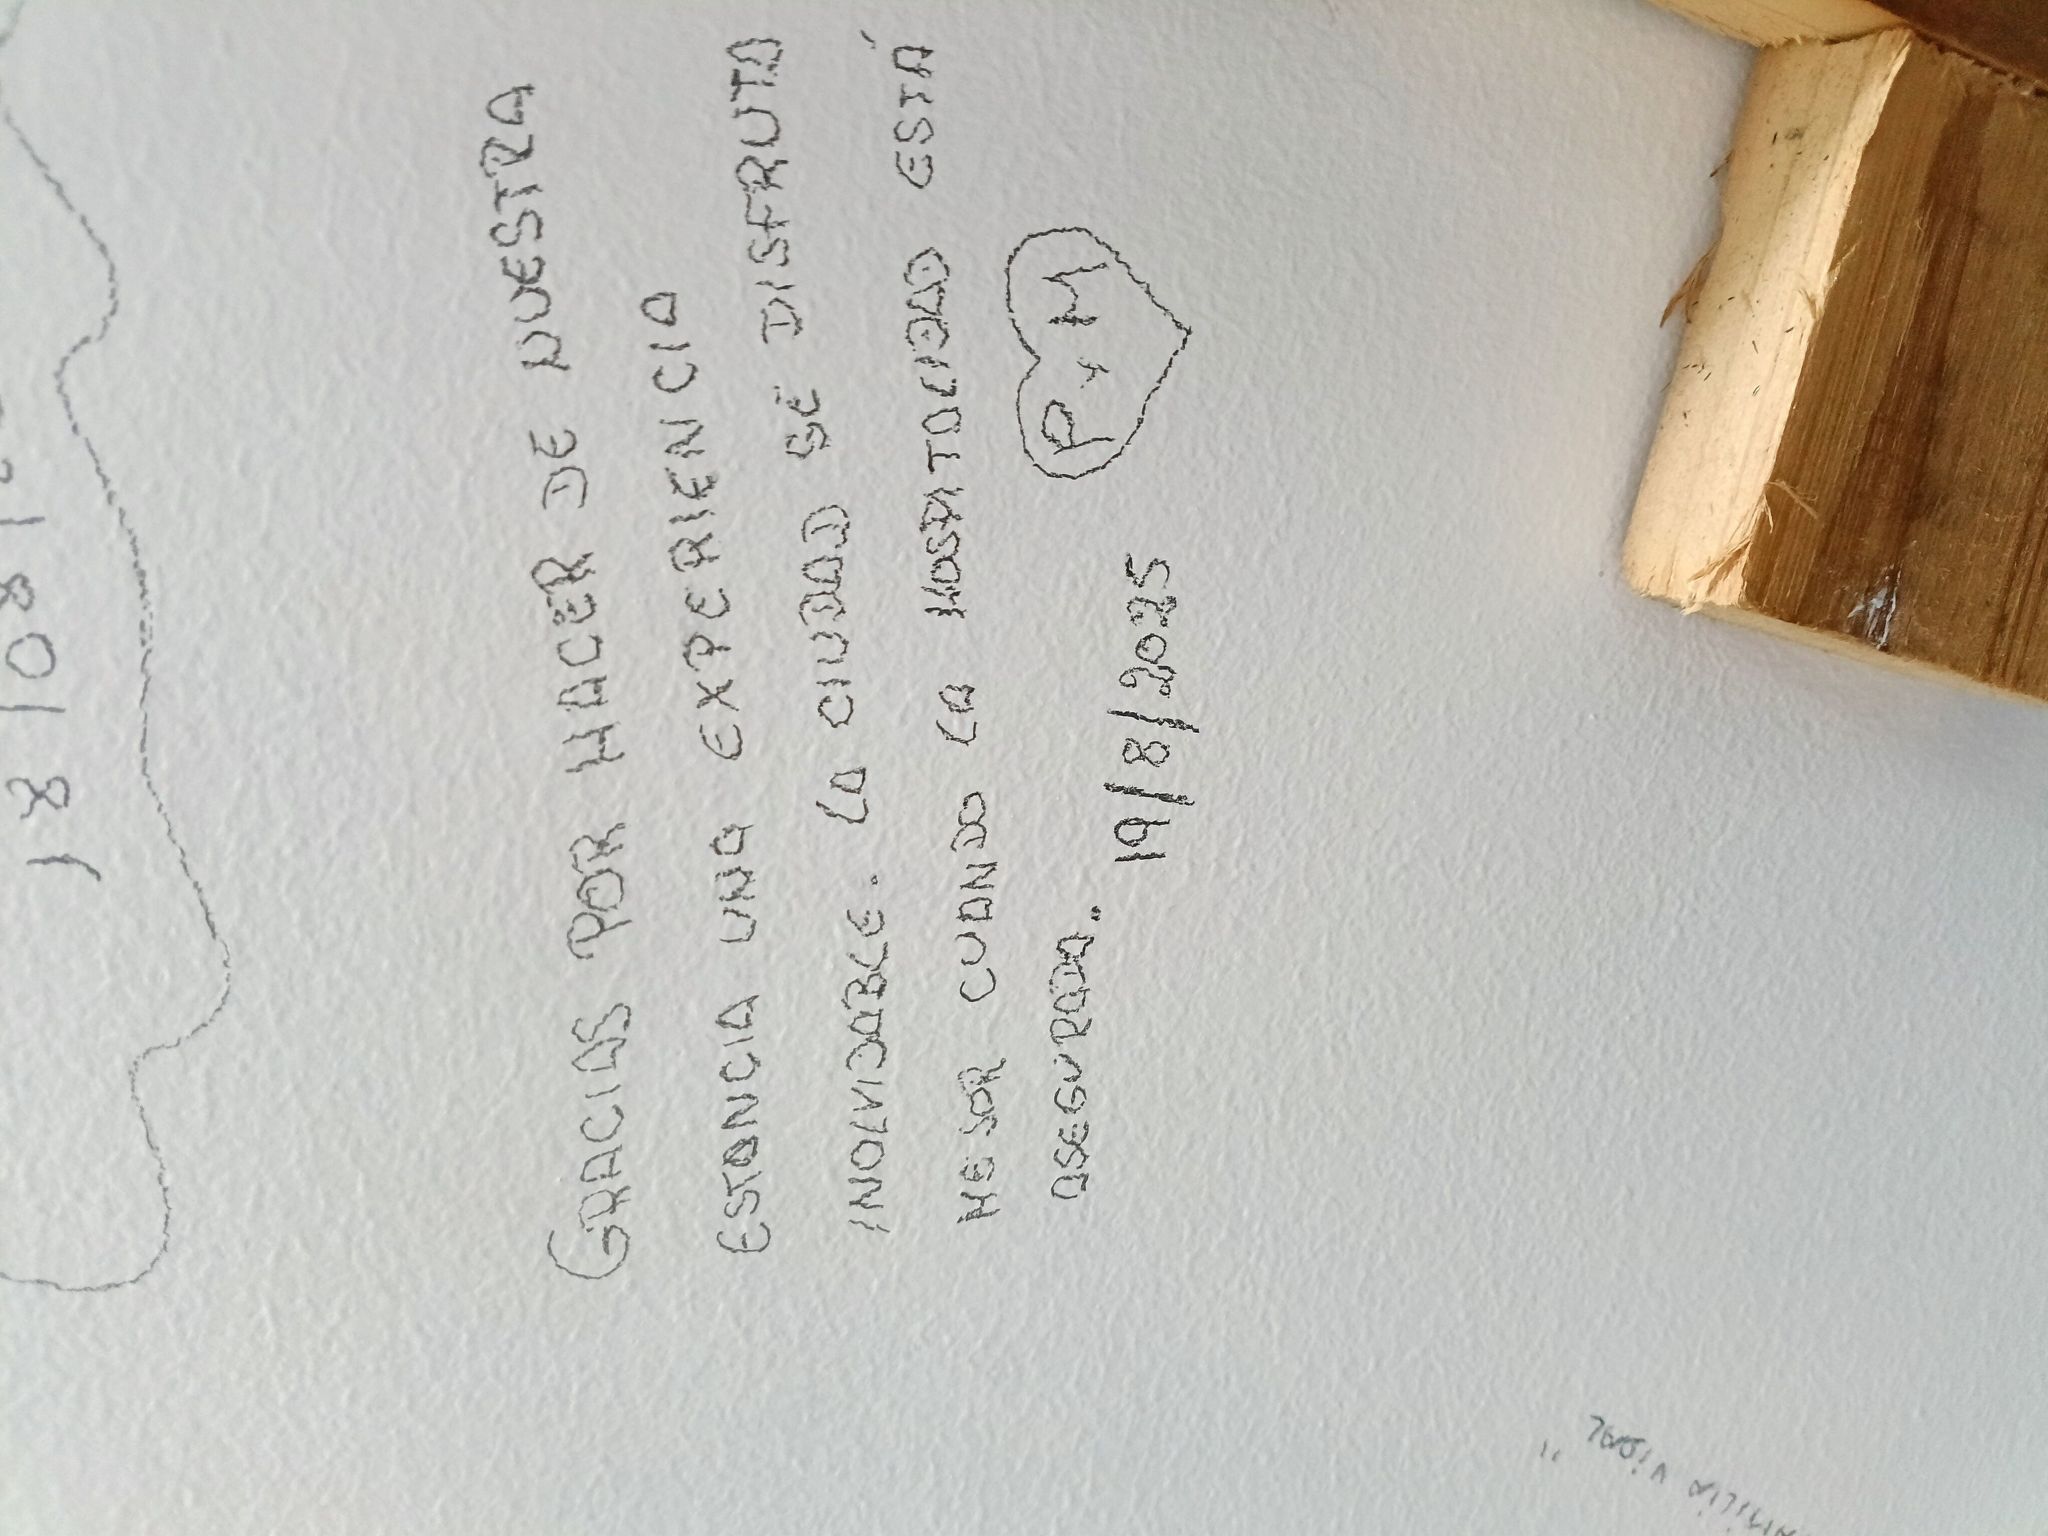 18/08/2
GRACIAS POR HACER DE NUESTRA
ESTANCIA UNA EXPERIENCIA
INOLVIDABLE. LA CIUDAD SE DISFRUTA
MEJOR CUANDO LA HOSPITALIDAD ESTÁ
ASEGURADA..
19/8/2025
P + M
AMILIA VIDAL"